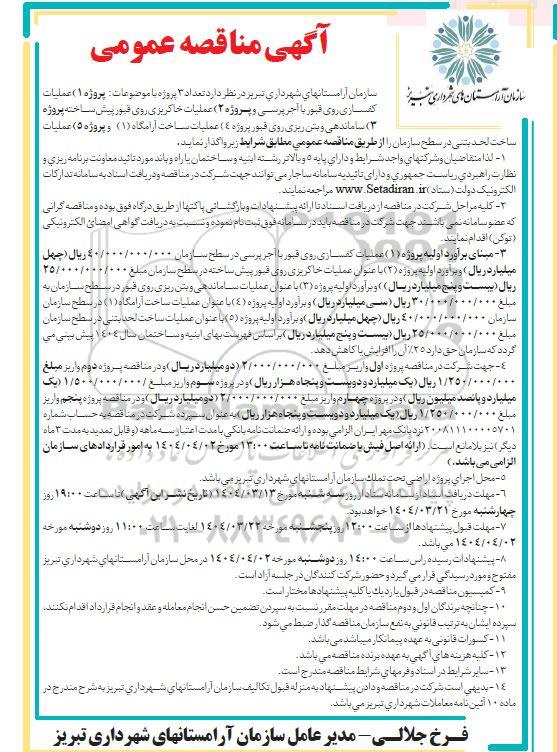 سازمان آرامستان‌های شهرداری تبریز
آگهی مناقصه عمومی
سازمان آرامستانهاي شهرداري تبريز در نظر دارد تعداد ۳ پروژه با موضوعات: پروژه ۱) عملیات
کفسازی روی قبور با آجر پرسی و پروژه ۲) عملیات خاکریزی روی قبور پیش ساخته پروژه
۳) ساماندهی و بتن ریزی روی قبور پروژه ۴) عملیات ساخت آرامگاه (۱) و پروژه ۵) عملیات
ساخت لحد بتنی در سطح سازمان را از طريق مناقصه عمومي مطابق شرایط زیر واگذار نماید.
۱- لذا متقاضیان و شرکتهای واجد شرایط و دارای پایه ۵ و بالاتر رشته ابنیه و ساختمان یا راه و باند مورد تائید معاونت برنامه ریزی و
نظارت راهبردی ریاست جمهوری و دارای تائیدیه سامانه ساجار می توانند جهت شرکت در مناقصه و دریافت اسناد به سامانه تدارکات
الکترونیک دولت (ستاد) www.Setadiran.ir مراجعه نمایند.
۲- کلیه مراحل شرکت در مناقصه از دریافت اسناد تا ارائه پیشنهادات و بازگشائی پاکتها از طریق درگاه فوق بوده و مناقصه گرانی
که عضو سامانه نمی باشند جهت شرکت در مناقصه باید در سامانه فوق ثبت نام نموده و نسبت به دریافت گواهی امضائ الکترونیکی
(توکن) اقدام نمایند.
۳- مبنای برآورد اولیه پروژه (۱) عملیات کفسازی روی قبور با اجر پرسی در سطح سازمان ۴۰/۰۰۰/۰۰۰/۰۰۰ ریال (چهل
میلیارد ریال) و برآورد اولیه پروژه (۲) با عنوان عملیات خاکریزی روی قبور پیش ساخته در سطح سازمان مبلغ ۲۵/۰۰۰/۰۰۰/۰۰۰
ریال (بیست و پنج میلیارد ریال)) و برآورد اولیه پروژه (۳) با عنوان عملیات ساماندهی و بتن ریزی روی قبور در سطح سازمان به
مبلغ ۳۰/۰۰۰/۰۰۰/۰۰۰ ریال (سی میلیارد ریال) و برآورد اولیه پروژه (۴) با عنوان عملیات ساخت آرامگاه (۱) در سطح سازمان
سازمان ۴۰/۰۰۰/۰۰۰/۰۰۰ ریال (چهل میلیارد ریال) و برآورد اولیه پروژه (۵) با عنوان عملیات ساخت لحد بتنی در سطح سازمان
مبلغ ۲۵/۰۰۰/۰۰۰/۰۰۰ ریال (بیست و پنج میلیارد ریال) بر اساس فهرست بهای ابنیه و ساختمان سال ۱۴۰۴ پیش بینی می
گردد که سازمان حق دارد ۲۵٪ آن را افزایش یا کاهش دهد.
۴- جهت شرکت در مناقصه پروژه اول واریز مبلغ ۲/۰۰۰/۰۰۰/۰۰۰ (دو میلیارد ریال) و در مناقصه پروژه دوم واریز مبلغ
۱/۲۵۰/۰۰۰/۰۰۰ ریال (یک میلیارد و دویست و پنجاه هزار ریال) و در پروژه سوم واریز مبلغ ۱/۵۰۰/۰۰۰/۰۰۰ (یک
میلیارد و پانصد میلیون ریال) و در پروژه چهارم واریز مبلغ ۲/۰۰۰/۰۰۰/۰۰۰ (دو میلیارد ریال) و در مناقصه پروژه پنجم واریز
مبلغ ۱/۲۵۰/۰۰۰/۰۰۰ ریال (یک میلیارد و دویست و پنجاه هزار ریال) به عنوان سپرده شرکت در مناقصه به حساب شماره
۲۰۰۸۱۱۱۰۰۰۰۵۷۰۱ نزد بانک مهر ایران الزامی بوده و ارائه ضمانت نامه بانکی با مدت اعتبار سه ماهه (و قابل تمدید به مدت ۳ ماه
دیگر) نیز بلامانع است. (ارائه اصل فیش یا ضمانت نامه تا ساعت ۱۳:۰۰ مورخ ۱۴۰۴/۰۴/۰۲ به امور قراردادهای سازمان
الزامی می باشد.)
۵- محل اجراي پروژه اراضی تحت تملک سازمان آرامستانهای شهرداري تبريز مي باشد.
۶- مهلت دریافت اسناد از سامانه ستاد از روز سه شنبه مورخ ۱۴۰۴/۰۳/۱۳ (تاریخ نشر این آگهی) تا ساعت ۱۹:۰۰ روز
چهارشنبه مورخ ۱۴۰۴/۰۳/۲۱ خواهد بود.
۷- مهلت قبول پیشنهادها از ساعت ۱۲:۰۰ روز پنجشنبه مورخه ۱۴۰۴/۰۳/۲۲ لغایت ساعت ۱۱:۰۰ روز دوشنبه مورخه
۱۴۰۴/۰۴/۰۲ می باشد.
۸- پیشنهادات رسیده راس ساعت ۱۴:۰۰ روز دوشنبه مورخه ۱۴۰۴/۰۴/۰۲ در محل سازمان آرامستانهای شهرداری تبریز
مفتوح و مورد رسیدگی قرار می گیرد و حضور شرکت کنندگان در جلسه آزاد است.
۹- کمیسیون مناقصه در قبول یا رد یک یا کلیه پیشنهادها مختار است.
۱۰- چنانچه برندگان اول و دوم مناقصه در مهلت مقرر نسبت به سپردن تضمین حسن انجام معامله و عقد و انجام قرارداد اقدام نکنند،
سپرده ایشان به ترتیب قانونی به نفع سازمان مناقصه گذار ضبط می شود.
۱۱- کسورات قانونی به عهده پیمانکار میباشد می باشد.
۱۲- کلیه هزینه های آگهی به عهده برنده مناقصه می باشد.
۱۳- سایر شرایط در اسناد و فرمهای شرایط مناقصه مندرج است.
۱۴- بدیهی است شرکت در مناقصه و دادن پیشنهاد به منزله قبول تکالیف سازمان آرامستانهای شهرداری تبریز به شرح مندرج در
ماده ۱۰ آئین نامه معاملات شهرداری تبریز می باشد.
فرخ جلالی - مدیر عامل سازمان آرامستانهای شهرداری تبریز